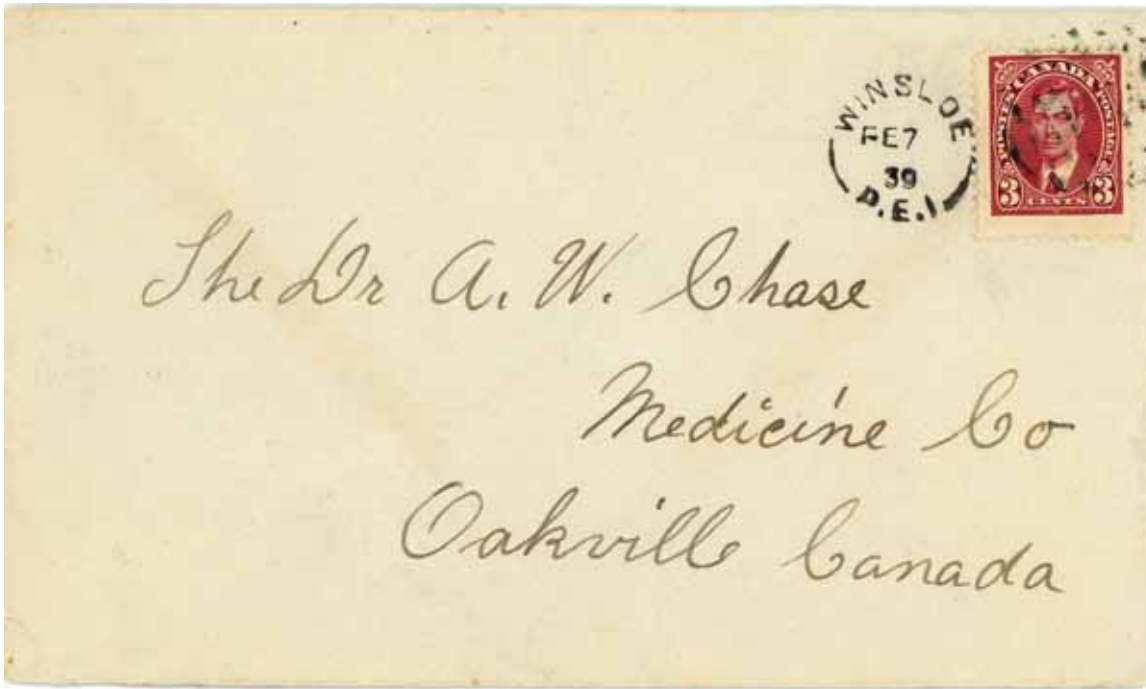 WINSLOE
FE 7
39
P.E.I
POSTES CANADA POSTAGE
3 CENTS 3
The Dr A. W. Chase
Medicine Co
Oakville Canada